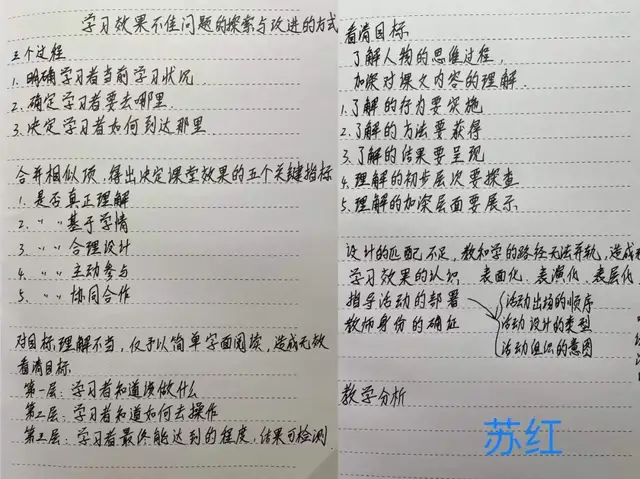 学习效果不佳问题的探索与改进的方式
三个过程
1. 明确学习者当前学习状况
2. 确定学习者要去哪里
3. 决定学习者如何到达那里
合并相似项,得出决定课堂效果的五个关键指标
1. 是否真正理解
2. 〃 〃 基于学情
3. 〃 〃 合理设计
4. 〃 〃 主动参与
5. 〃 〃 协同合作
对目标理解不当,仅予以简单字面阅读,造成无效
看清目标
第一层:学习者知道该做什么
第二层:学习者知道如何去操作
第三层:学习者最终能达到的程度,结果可检测
看清目标
了解人物的思维过程,
加深对课文内容的理解.
1.了解的行为要实施
2.了解的方法要获得
3.了解的结果要呈现
4.理解的初步层次要探查
5.理解的加深层面要展示
设计的匹配不足,教和学的路径无法并轨,造成
学习效果的认识 表面化、表演化、表层化
指导活动的部署
教师身份的确证
活动出场的顺序
活动设计的类型
活动组织的意图
教学分析
苏红